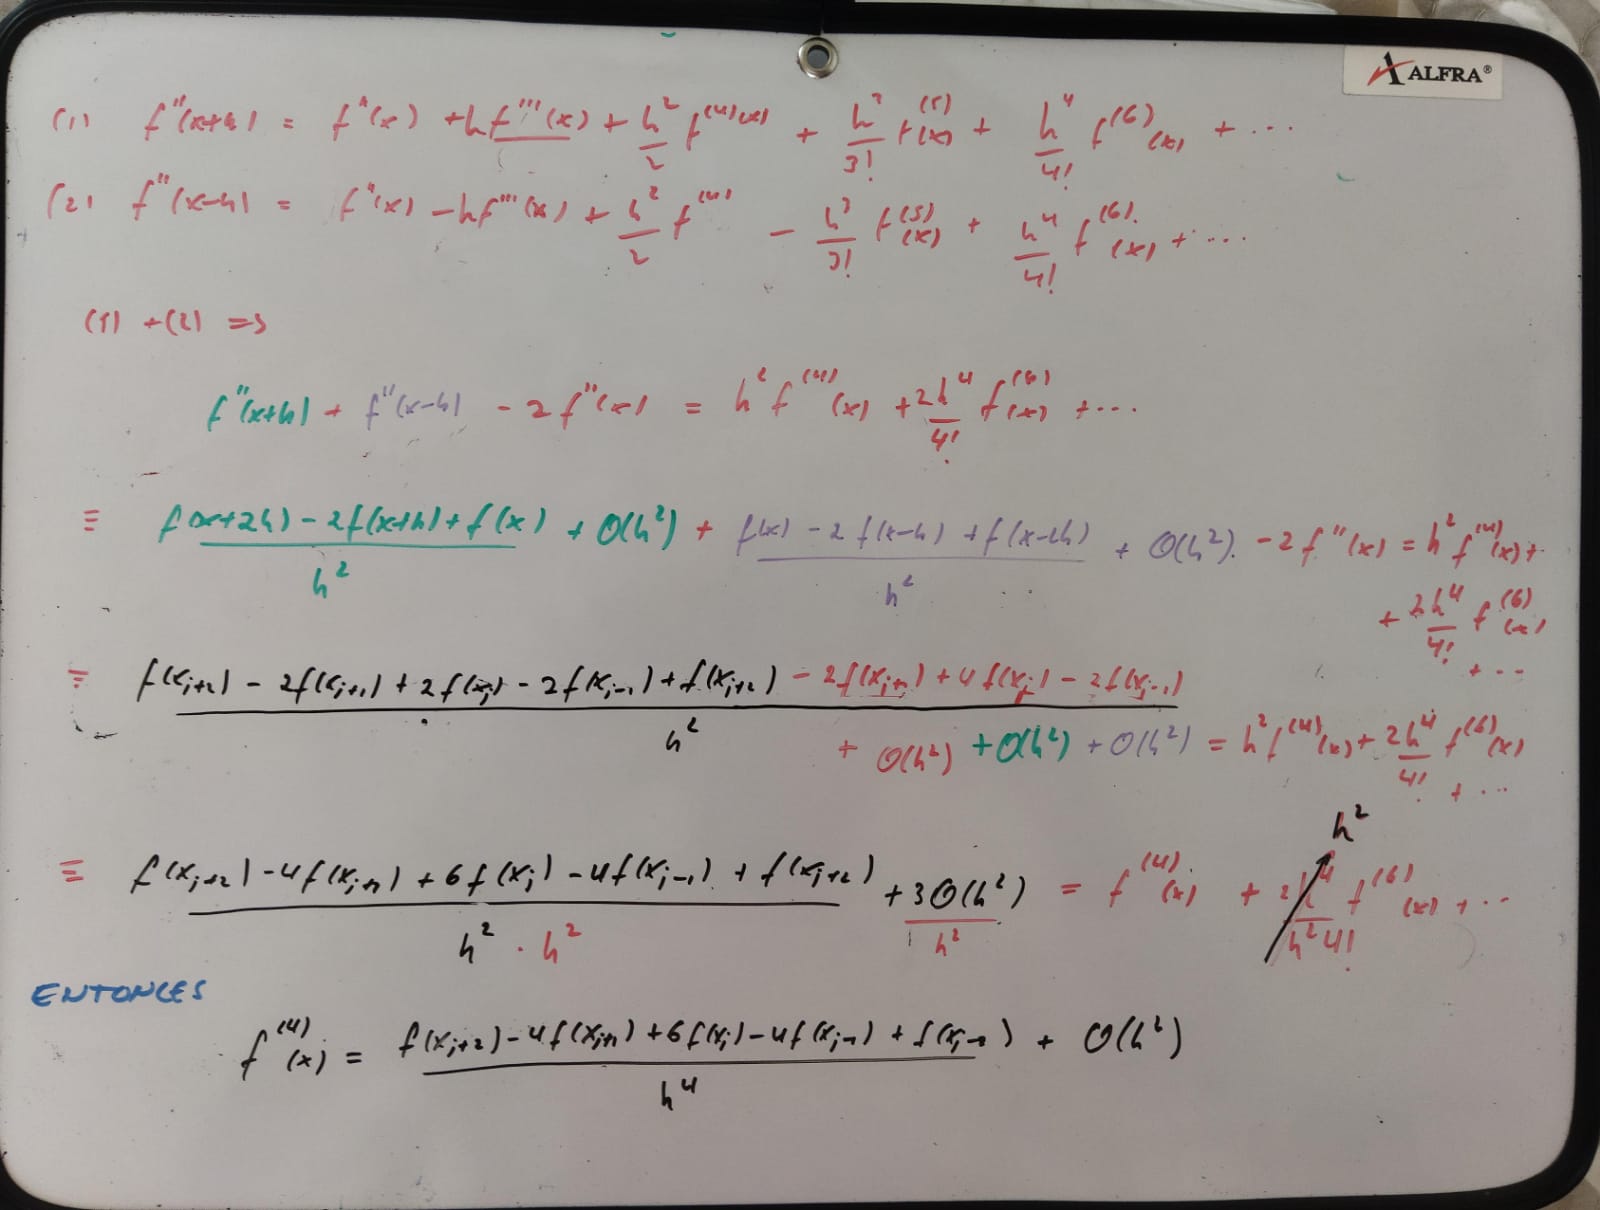 ALFRA®
(1) f''(x+h) = f''(x) + hf'''(x) + h²/2 f⁽⁴⁾(x) + h³/3! f⁽⁵⁾(x) + h⁴/4! f⁽⁶⁾(x) + ...
(2) f''(x-h) = f''(x) - hf'''(x) + h²/2 f⁽⁴⁾ - h³/3! f⁽⁵⁾(x) + h⁴/4! f⁽⁶⁾(x) + ...
(1) + (2) =>
f''(x+h) + f''(x-h) - 2f''(x) = h² f⁽⁴⁾(x) + 2h⁴/4! f⁽⁶⁾(x) + ...
≡ (f(x+2h) - 2f(x+h) + f(x))/h² + O(h²) + (f(x) - 2f(x-h) + f(x-2h))/h² + O(h²) - 2f''(x) = h² f⁽⁴⁾(x) +
+ 2h⁴/4! f⁽⁶⁾(x)
+ ...
≡ (f(xᵢ₊₂) - 2f(xᵢ₊₁) + 2f(xᵢ) - 2f(xᵢ₋₁) + f(xᵢ₊₂) - 2f(xᵢ₊₁) + 4f(xᵢ) - 2f(xᵢ₋₁))/h²
+ O(h²) + O(h²) + O(h²) = h² f⁽⁴⁾(x) + 2h⁴/4! f⁽⁶⁾(x)
+ ...
h²
≡ (f(xᵢ₊₂) - 4f(xᵢ₊₁) + 6f(xᵢ) - 4f(xᵢ₋₁) + f(xᵢ₊₂))/(h² · h²) + 3O(h²)/h² = f⁽⁴⁾(x) + 2h⁴/(h² 4!) f⁽⁶⁾(x) + ...
ENTONCES
f⁽⁴⁾(x) = (f(xᵢ₊₂) - 4f(xᵢ₊₁) + 6f(xᵢ) - 4f(xᵢ₋₁) + f(xᵢ₋₂))/h⁴ + O(h²)